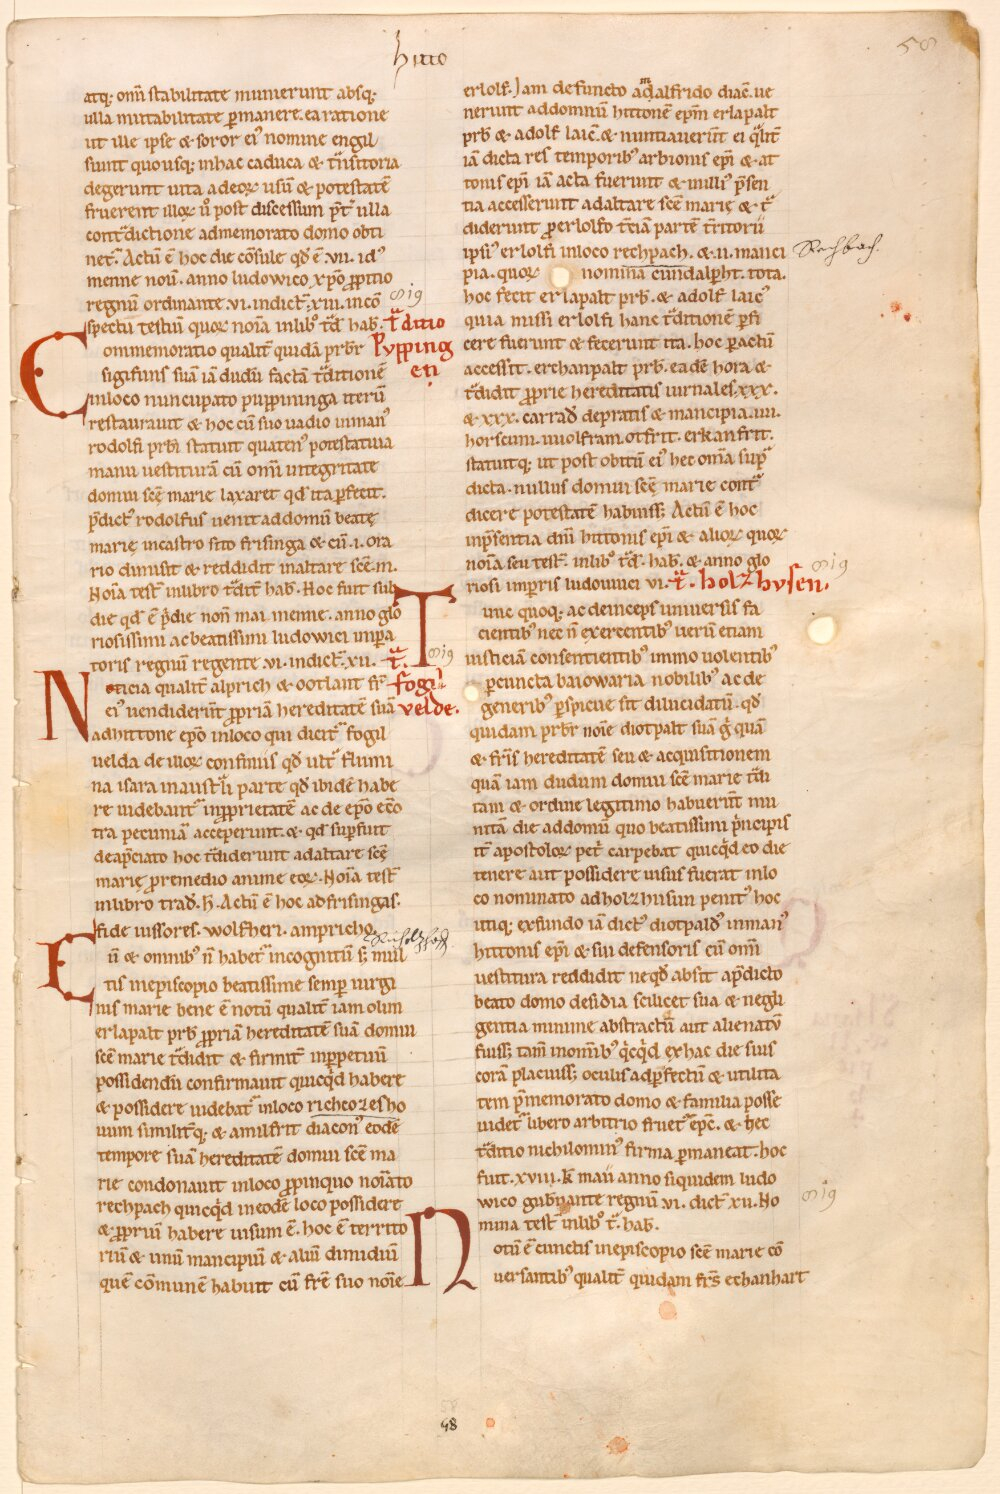 hitto
58
atq; om̄i stabilitate munierunt absq;
ulla mutabilitate p̱manere. ea ratione
ut ille ipse & soror ei᾽ nomine engil
suunt quousq; inhac caduca & tᷓnsitoria
degerunt uita adeoꝝ usū & potestatē
fruerent illoꝝ u̾o post discessum p̄t ulla
contᷓdictione admemorato domo obti
netᷓ. Actū ē hoc die cōsule qd̄ ē .vii. id᾽
menne nou̅. anno ludowico xp̄o ꝓpitio
regnū ordinante .vi. indict̄. xiii. incō
spectu testiū quoꝝ noīa inlib᾽ tᷓd hab̄. tᷓditio
Pypping
en
Commemoratio qualit̄ quidā prbr̄
sigifuns suā iā dudū factā tᷓditionē
inloco nuncupato puppininga iterū
restaurauit & hoc cū suo uadio inman᾽
rodolfi prb̄i statuit quaten᾽ potestatiua
manu uestiturā cū om̄i integritate
domui scē marie laxaret qd̄ ita p̱fecit.
p̄dict᾽ rodolfus uenit addomū beatę
marię incastro sito frisinga & cū .i. ora
rio dimisit & reddidit inaltare scē .m.
Noīa test̄ inlibro tᷓdit̄ hab̄. Hoc fuit sub
die qd̄ ē p̄die non̄ mai menne. anno glo
riosissimi ac beatissimi ludowici imp̱a
toris regnū regente .vi. indict̄. xii. tᷓ.
fogil
velde.
Noticia qualit̄ alprich & ootlant fr̄
ei᾽ uendider̄t ꝓpriā hereditatē suā
adhittone ep̄o inloco qui dicit᷑ fogil
uelda de illoꝝ confinus qd̄ ult̾ flumi
na isara inaust̾li parte qd̄ ibidē habe
re uidebant᷑ inꝓprietatē ac de ep̄o ec̄o
tra pecuniā acceperunt. & qd̄ sup̱fuit
deap̄ciato hoc tᷓdiderunt adaltare scē
marię ꝓremedio anime eoꝝ. Noīa test̄
inlibro trad̄. H̄. Actū ē hoc adfrisingas.
fide iussores. wolfheri. ampricho.
Richolzhof
Eū & omnib᾽ n̄ habet᷑ incognitū s; mul
tis inepiscopio beatissime semp̱ uirgi
nis marie bene ē notū qualit̄ iam olim
erlapalt prb̄ ꝓpriā hereditatē suā domui
scē marie tᷓdidit & firmit̄ inp̱petuū
possidendū confirmauit quicq̄d habere
& possidere uidebat᷑ inloco richeozesho
uum similit̄q; & amilfrit diacon᾽ eodē
tempore suā hereditatē domui scē ma
rie condonauit inloco ꝓpinquo noīato
rechpach quicq̄d ineodē loco possidere
& ꝓpriū habere uisum ē. hoc ē territo
riū & unū mancipiū & aliū dimidiū
quē cōmunē habuit cū fr̄e suo noīe
erlolf. Iam defuncto adalfrido diac̄. ue
nerunt addomnū hittonē ep̄m erlapalt
prb̄ & adolf laic̄. & nuntiauer̄t ei q̄lit̄
iā dicta res temporib᾽ arbionis ep̄i & at
tonis ep̄i iā acta fuerunt & inilli᾽ p̄sen
tia accesserunt adaltare scē marię & tᷓ
diderunt ꝓerlolfo t̄ciā partē t̄ritorii
ipsi᾽ erlolfi inloco rechpach. & .ii. manci
Rechbach.
pia. quoꝝ nomina cundalpht̄. tota.
hoc fecit erlapalt prb̄. & adolf laic᾽
quia missi erlolfi hanc tᷓditionē p̱fi
cere fuerunt & fecerunt ita. hoc p̱actū
accessit. erchanpalt prb̄. eadē hora &
tᷓdidit ꝓprie hereditatis iurnales .xxx.
& .xxx. carrad̄ depratis & mancipia .iiii.
horscum. uuolfram. otfrit. erkanfrit.
statuitq; ut post obitū ei᾽ hec om̄a supᷓ
dicta. nullus domui scē marie contᷓ
dicere potestatē habuiss; Actū ē hoc
inp̄sentia dn̄i hittonis ep̄i & alioꝝ quoꝝ
noīa seu test̄. inlib᾽ tᷓd̄. hab̄. & anno glo
riosi imp̱ris ludouuici vi. tᷓ. holzhusen.
Tunc quoq; ac deinceps uniuersis fa
cientib᾽ nec n̄ exercentib᾽ uerū etiam
iusticiam consentientib᾽ immo uolentib᾽
p̱cuncta baiowaria nobilib᾽ ac de
generib᾽ p̱spicue sit dilucidatū. qd̄
quidam prbr̄ noīe diotpalt suā q̄ quā
& fr̄is hereditatē seu & acquisitionem
quā iam dudum domui scē marie tᷓdi
tam & ordine legitimo habuer̄t inu
nitā die addomū quo beatissimi p̄ncipis
it̄ apostoloꝝ pet̾ carpebat quicq̄d eo die
tenere aut possidere uisus fuerat inlo
co nominato adholzhusun penit᾽ hoc
utiq; exfundo iā dict᾽ diotpald᾽ inman᾽
hittonis ep̄i & sui defensoris cū om̄i
uestitura reddidit neqd̄ absit ap̄dicto
beato domo desidia scilicet sua & negli
gentia minime abstractū aut alienatū
fuiss; tam̄ inom̄ib᾽ q̄cq̄d exhac die suis
corā placuiss; oculis adp̱fectū & utilita
tem p̄memorato domo & familia posse
uidet᷑ libero arbitrio fruet᷑ ep̄c. & hec
tᷓditio nichilomin᾽ firma p̱maneat. hoc
fuit .xviii. k̄ maii anno siquidem ludo
wico gub̾nante regnū vi. dict̄ xii. No
mina test̄ inlib᾽ tᷓ. hab̄.
Notū ē cunctis inepiscopio scē marie cō
uersantib᾽ qualit̄ quidam fr̄s echanhart
48